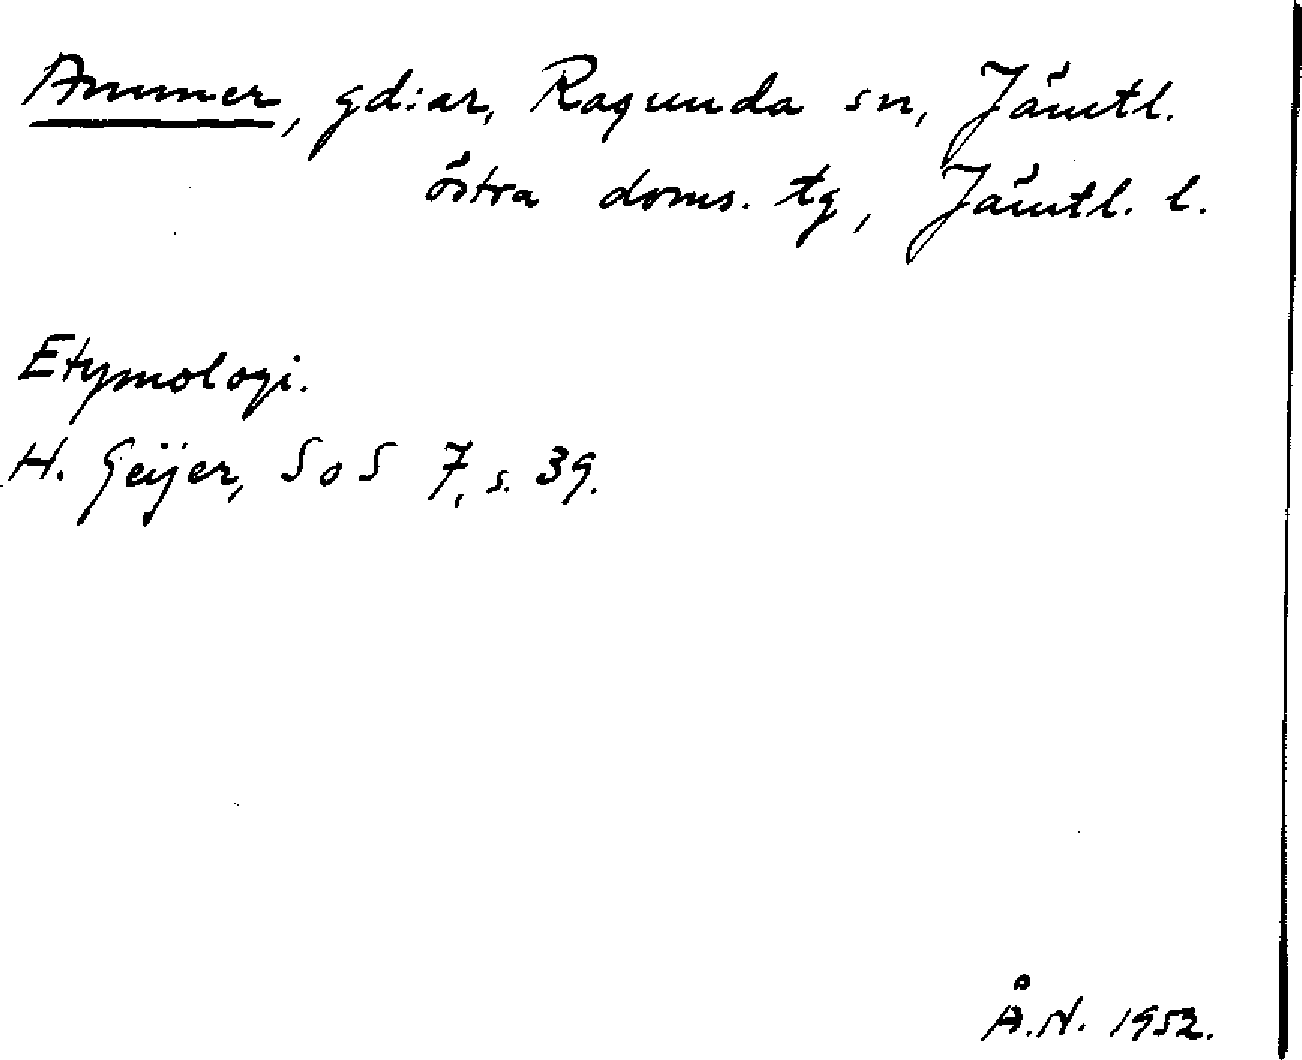 Ammer, gd:ar, Ragunda sn, Jämtl.
östra doms. tg, Jämtl. l.
Etymologi.
H. Geijer, SoS 7, s. 39.
Å.N. 1952.